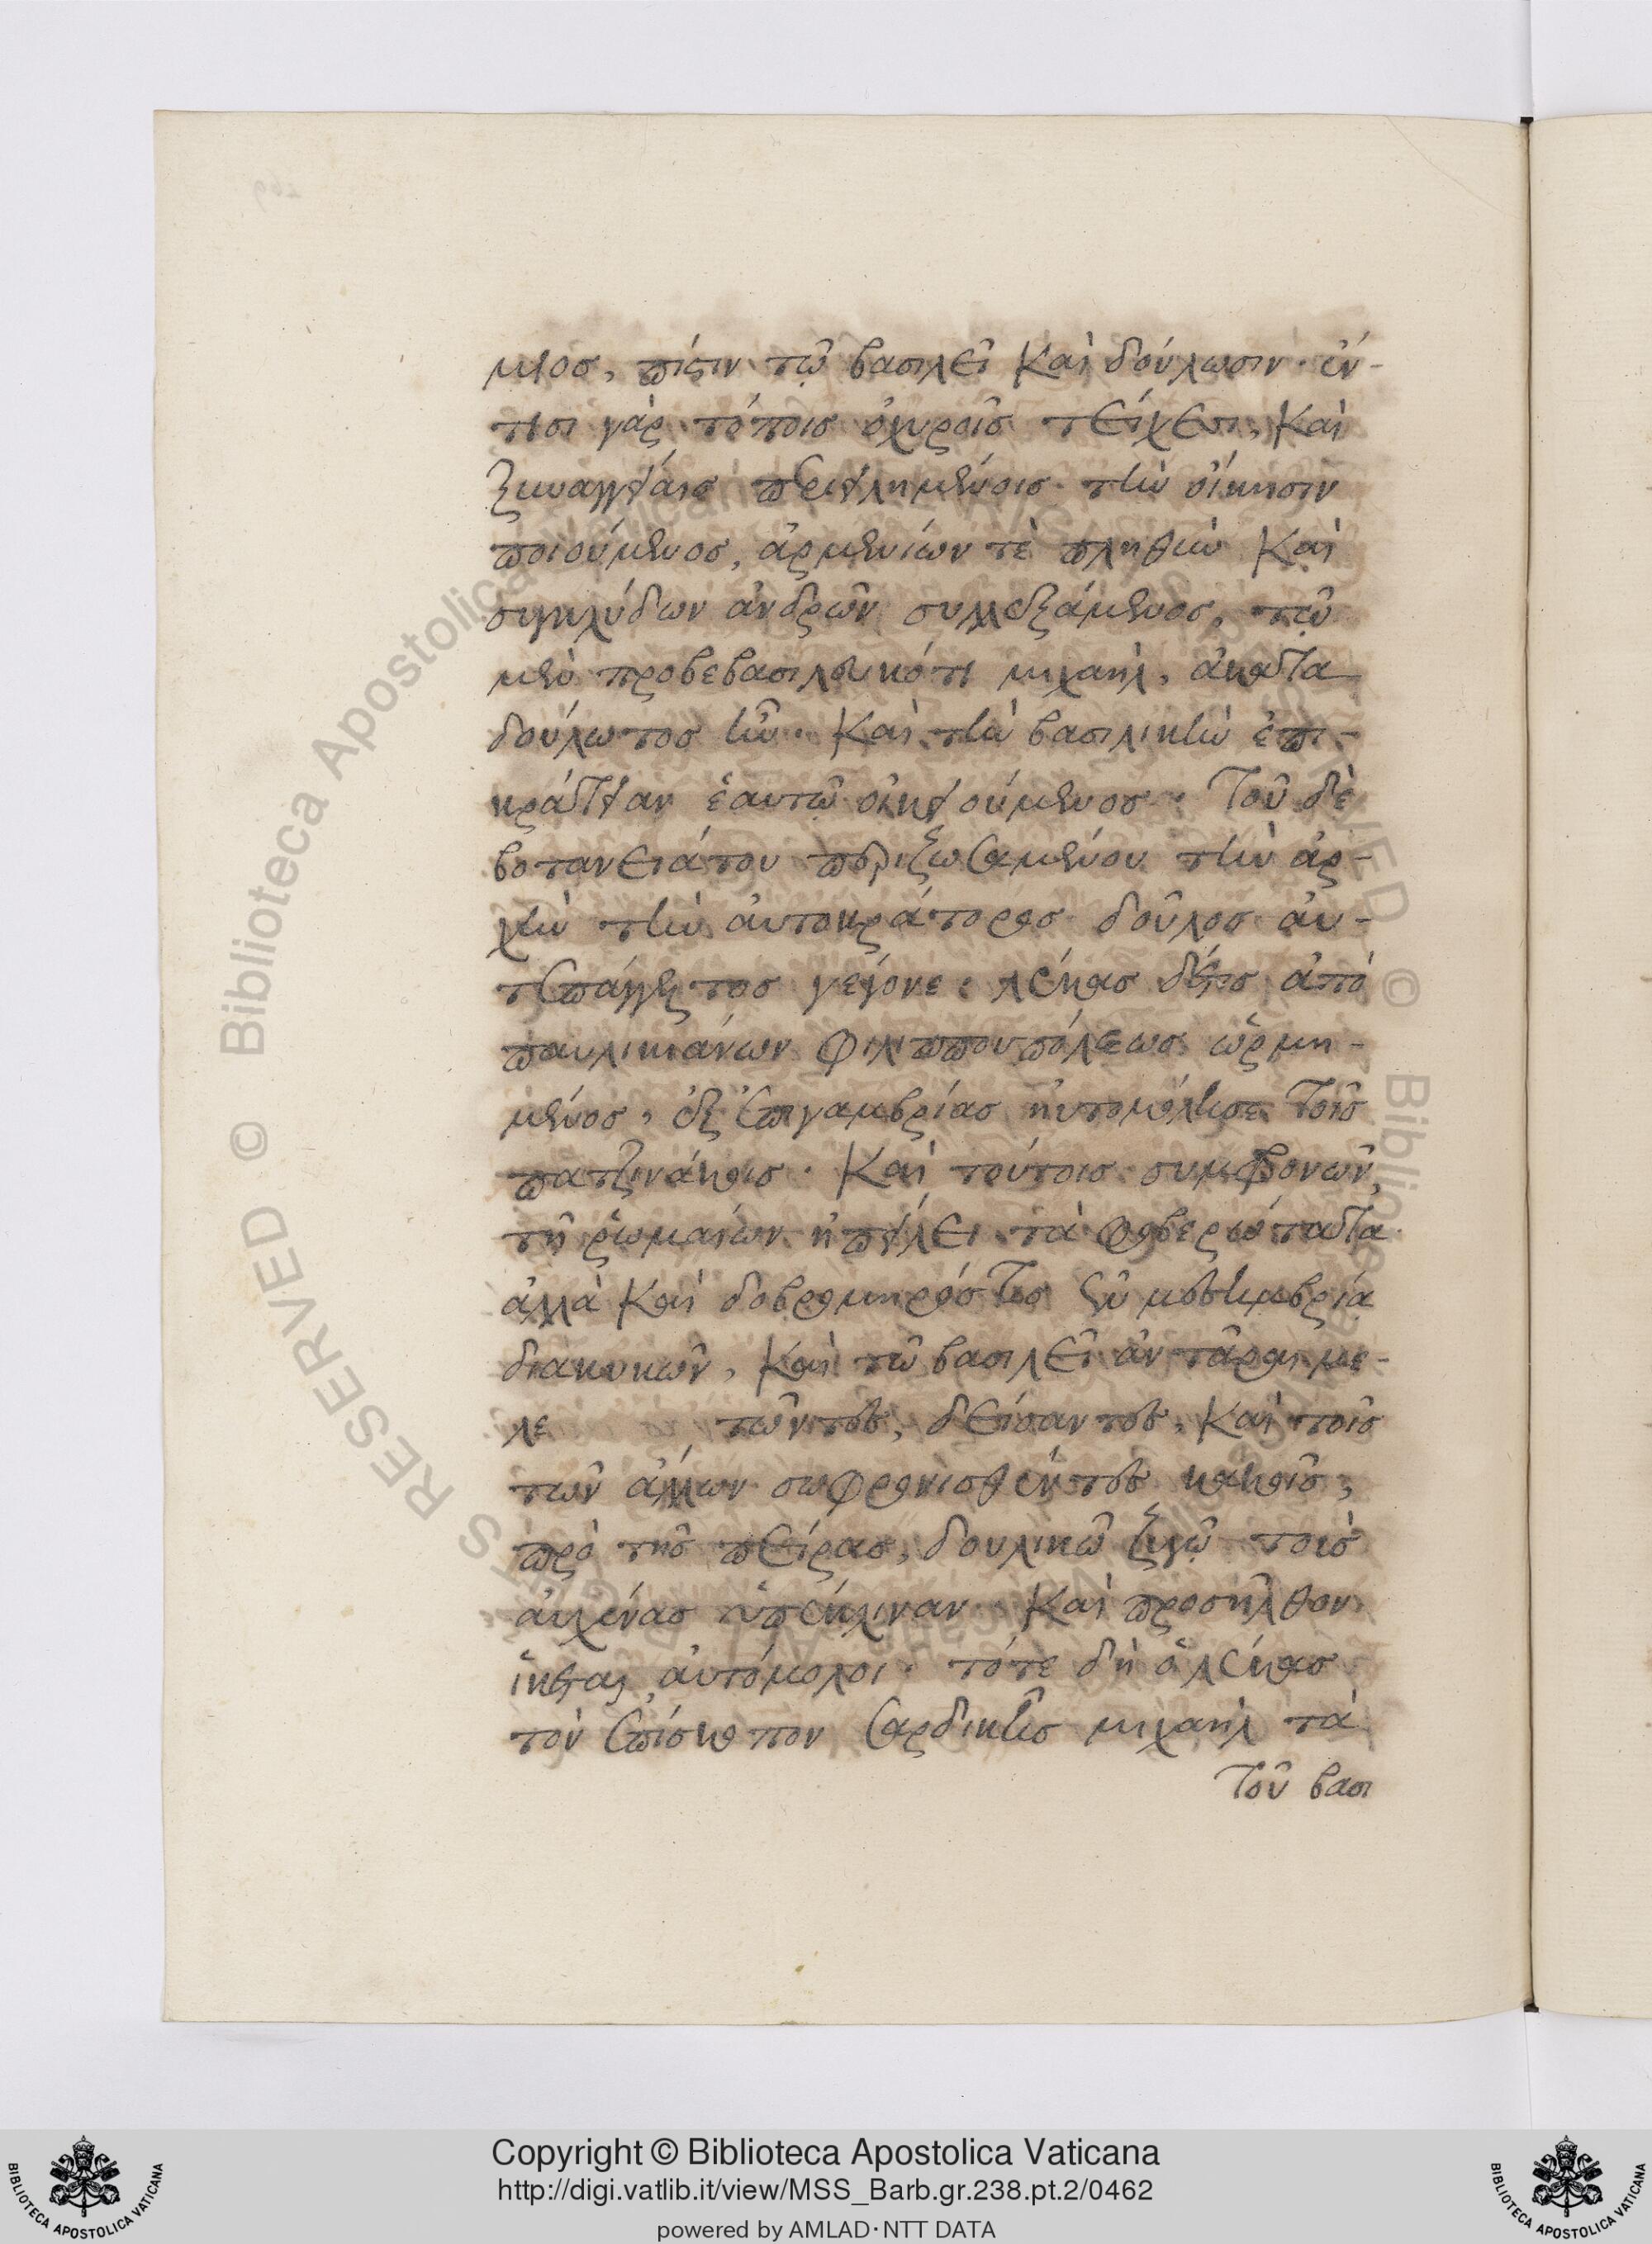 μιος, πίστιν τῷ βασιλεῖ καὶ δούλωσιν. ἐν-
τισι γὰρ τόποις ὀχυροῖς τείχεσι, καὶ
ξυναγγείαις περιειλημμένοις τὴν οἴκησιν
ποιούμενος, ἀρμενίων τὲ πληθὺν καὶ
συγκλύδων ἀνδρῶν συλλεξάμενος, τῷ
μὲν προβεβασιλευκότι μιχαὴλ, ἀκατα
δούλωτος ἦν. καὶ τὴν βασιλικὴν ἐπι-
κράτειαν ἑαυτῷ οἰκειούμενος. τοῦ δὲ
βοτανειάτου περιζωσαμένου τὴν ἀρ-
χὴν τὴν αὐτοκράτορος δοῦλος αὐ-
τεπάγγελτος γέγονε. λέκας δέ τις ἀπὸ
παυλικιάνων φιλιππουπόλεως ὡρμη-
μένος, ἐξ ἐπιγαμβρίας ηὐτομόλησε τοῖς
πατζινάκοις. καὶ τούτοις συμφρονῶν,
τῇ ῥωμαίων ἠπείλει τὰ φοβερώτατα
ἀλλὰ καὶ δοβρομηρόστος ἐν μεσημβρίᾳ
διακυκῶν, καὶ τῷ βασιλεῖ ἀντᾶραι με-
λε τῶντες, δείσαντες, καὶ τοῖς
τῶν ἄλλων σωφρονισθέντες κακοῖς,
πρὸ τῆς πείρας, δουλικῷ ζυγῷ τοὺς
αὐχένας ὑπέκλιναν. καὶ προσῆλθον
ἱκέται αὐτόμολοι. τότε δὴ ὁ λέκας
τὸν ἐπίσκοπον σαρδικῆς μιχαὴλ τὰ
τοῦ βασι
Copyright © Biblioteca Apostolica Vaticana
http://digi.vatlib.it/view/MSS_Barb.gr.238.pt.2/0462
powered by AMLAD·NTT DATA